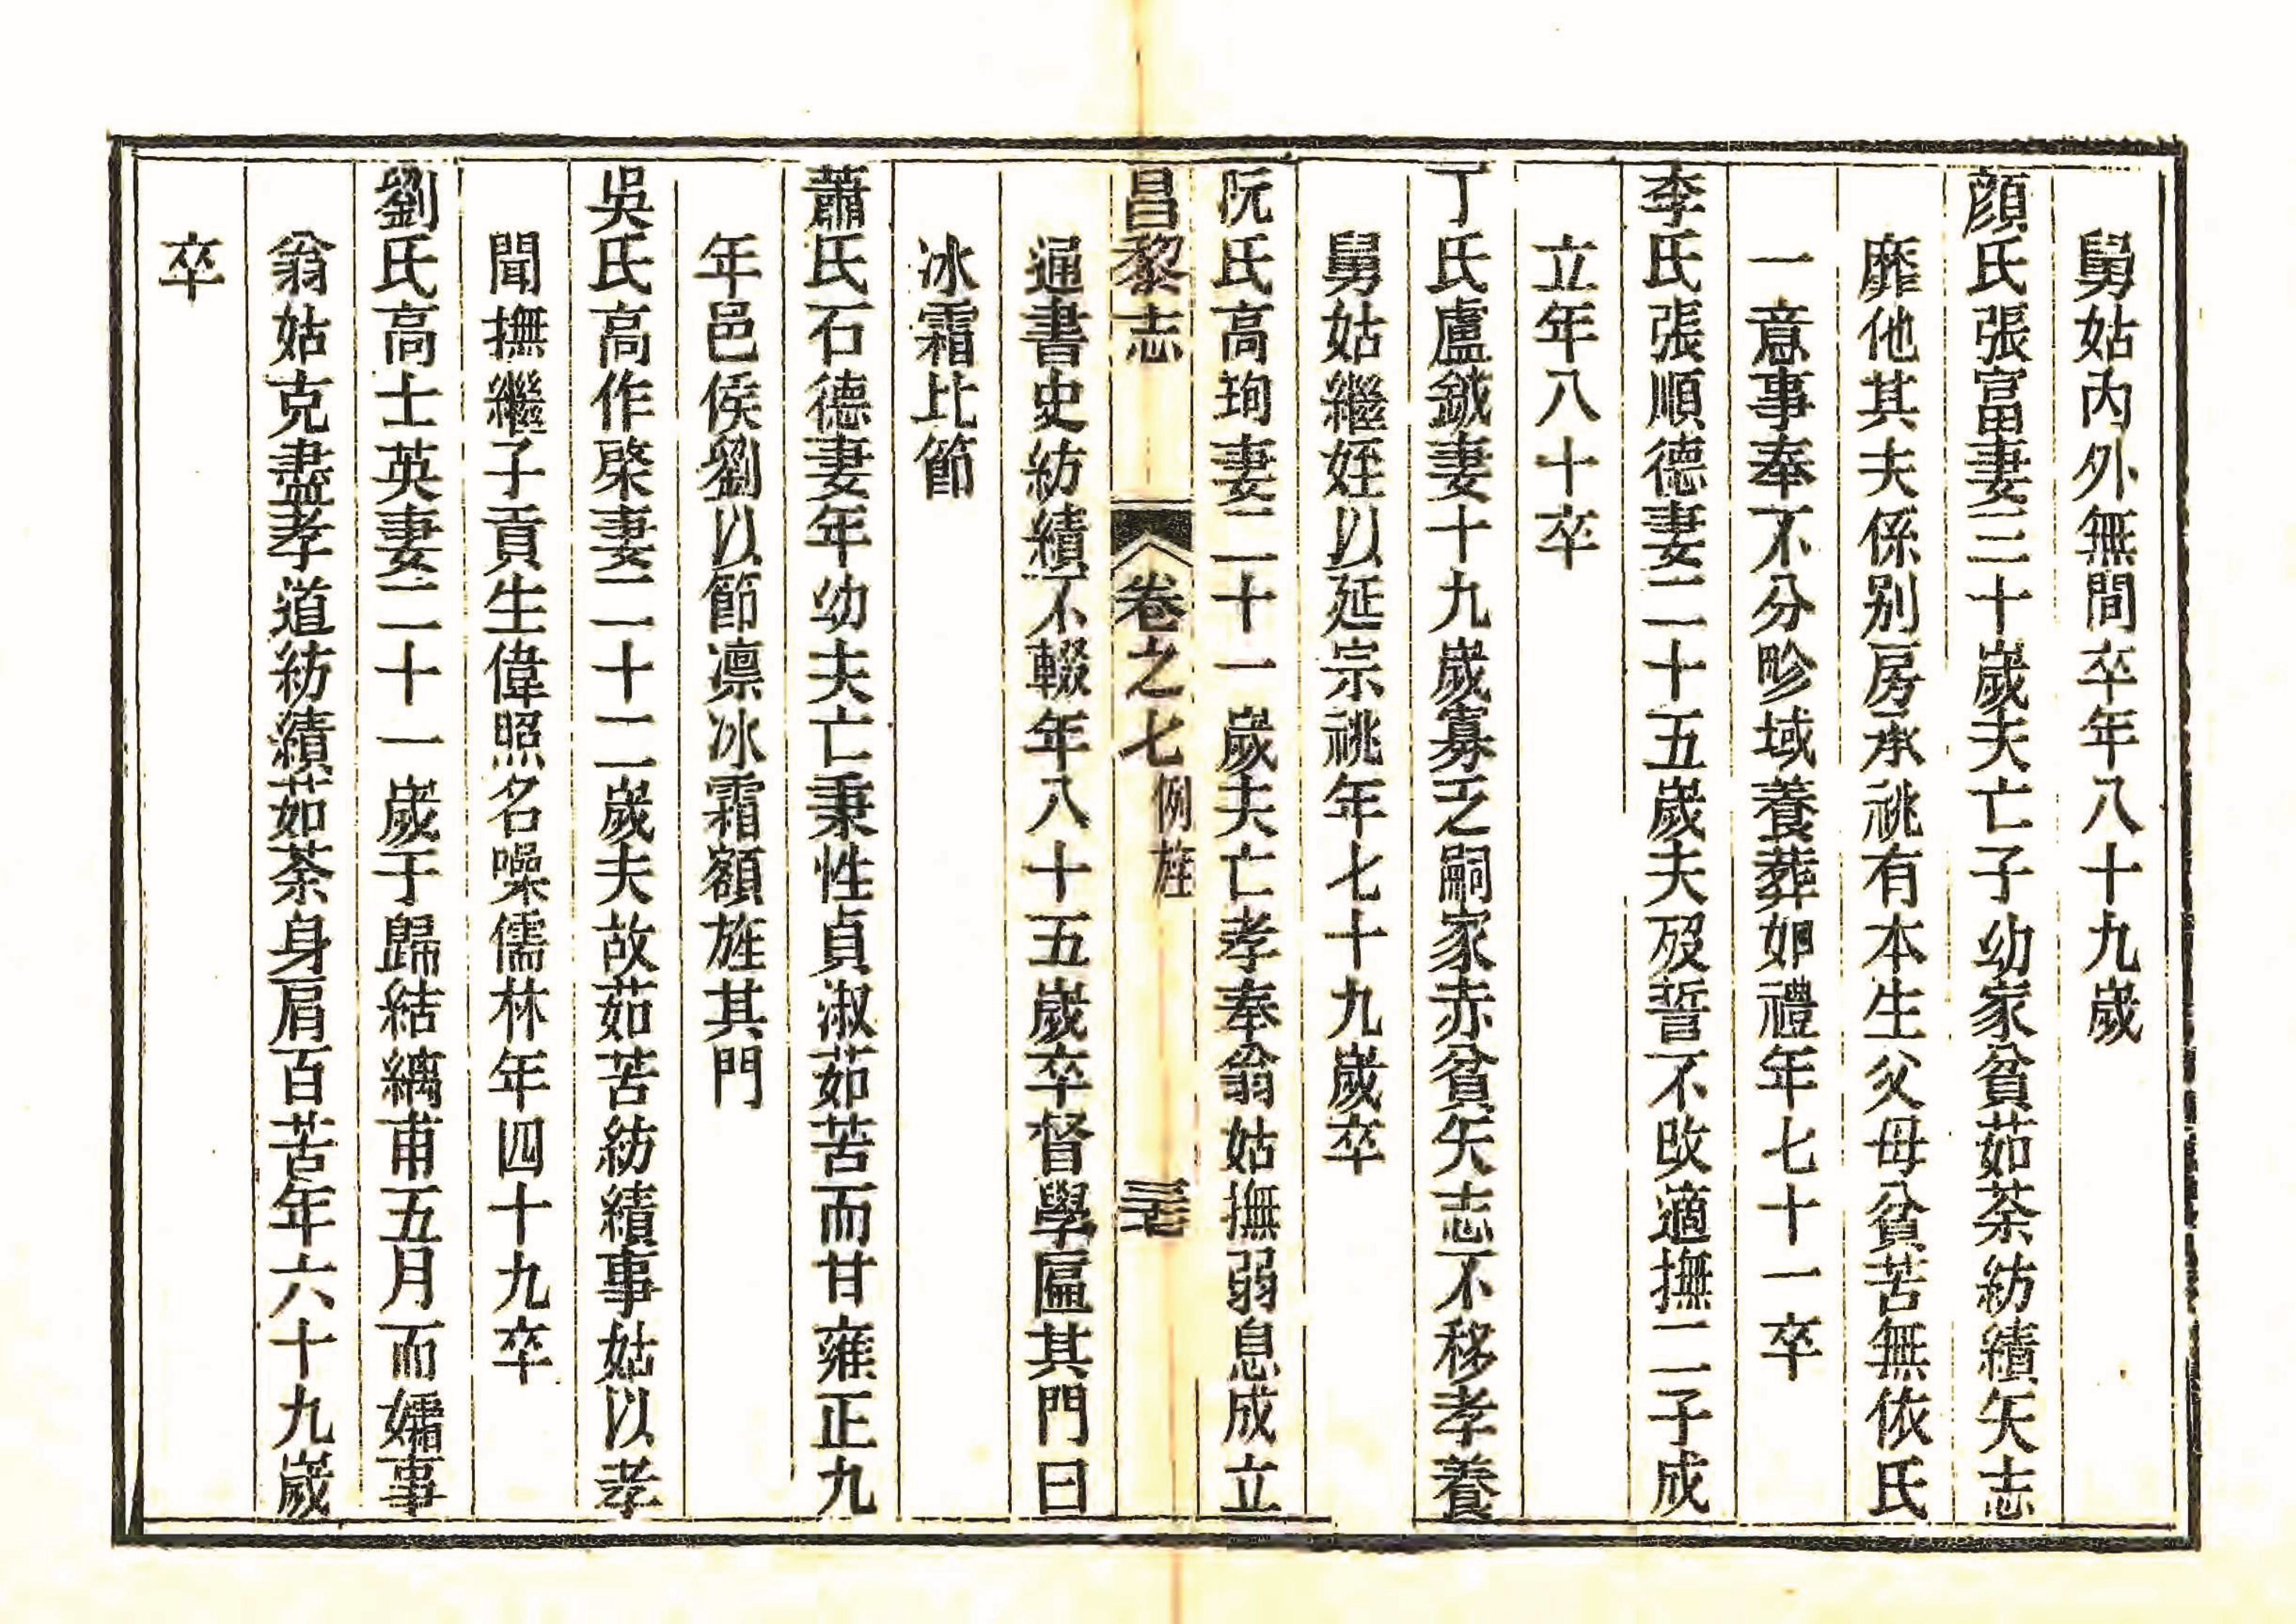 舅姑內外無間卒年八十九歲
顔氏張富妻三十歲夫亡子幼家貧茹荼紡績矢志
靡他其夫係别房承祧有本生父母貧苦無依氏
一意事奉不分畛域養葬如禮年七十一卒
李氏張順德妻二十五歲夫歿誓不改適撫二子成
立年八十卒
丁氏盧鉞妻十九歲寡乏嗣家赤貧矢志不移孝養
舅姑繼姪以延宗祧年七十九歲卒
阮氏高珣妻二十一歲夫亡孝奉翁姑撫弱息成立
昌黎志 卷之七 例旌 三七
通書史紡績不輟年八十五歲卒督學匾其門曰
冰霜比節
蕭氏石德妻年幼夫亡秉性貞淑茹苦而甘雍正九
年邑侯劉以節凛冰霜額旌其門
吳氏高作棨妻二十二歲夫故茹苦紡績事姑以孝
聞撫繼子貢生偉照名噪儒林年四十九卒
劉氏高士英妻二十一歲于歸結縭甫五月而孀事
翁姑克盡孝道紡績茹荼身肩百苦年六十九歲
卒